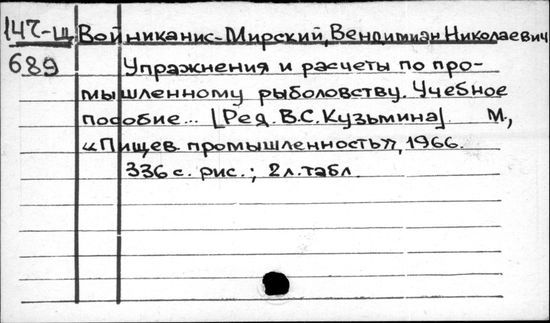 147-щ Войниканис-Мирский, Вендимиан Николаевич
689 Упражнения и расчеты по про-
мышленному рыболовству. Учебное
пособие... [Ред. В.С. Кузьмина] М.,
«Пищев. промышленность», 1966.
336 с. рис.; 2 л. табл.